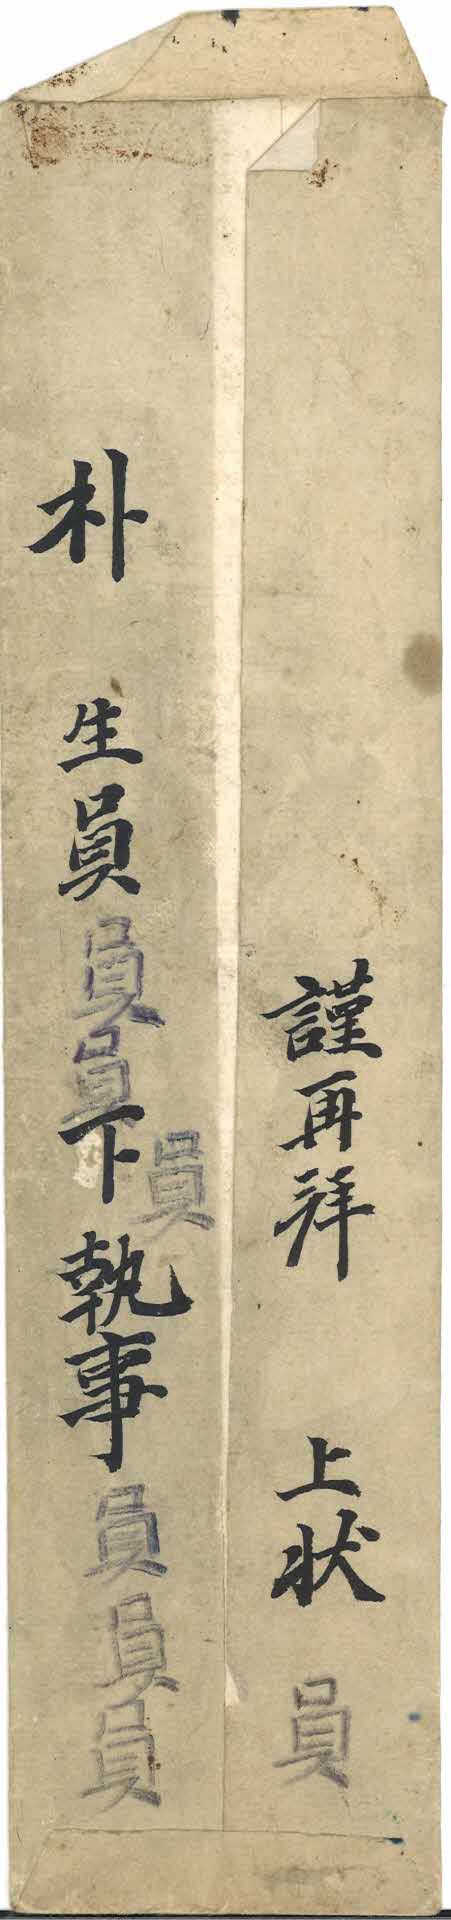 謹再拜 上狀 員
員
朴 生員 員 員 下執事 員 員 員